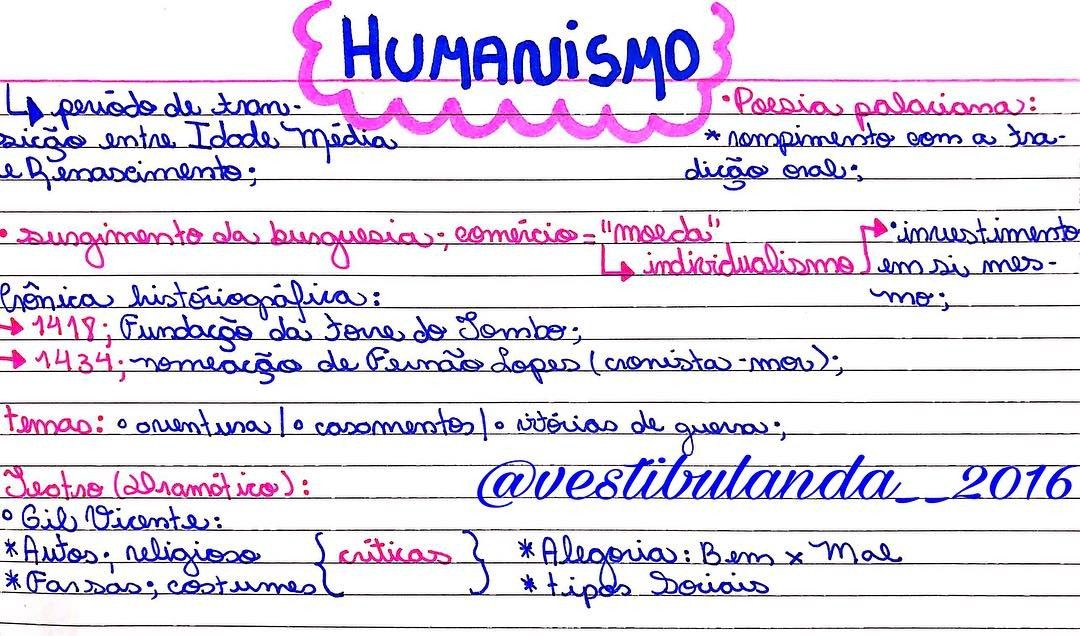 HUMANiSMO
período de tran-
sição entre Idade Média
e Renascimento;
•Poesia palaciana:
* rompimento com a tra-
dição oral;
• surgimento da burguesia; comércio = "moeda"
individualismo
•investimento
em si mes-
mo;
Crônica históriográfica:
→ 1418; Fundação da torre do Tombo;
→ 1434; nomeação de Fernão Lopes (cronista-mor);
temas: ° aventura |° casamentos |° vitórias de guerra;
Teatro (Dramático):
@vestibulanda__2016
° Gil Vicente:
*Autos; religioso { críticas } * Alegoria: Bem x Mal
*Farsas; costumes * tipos Sociais